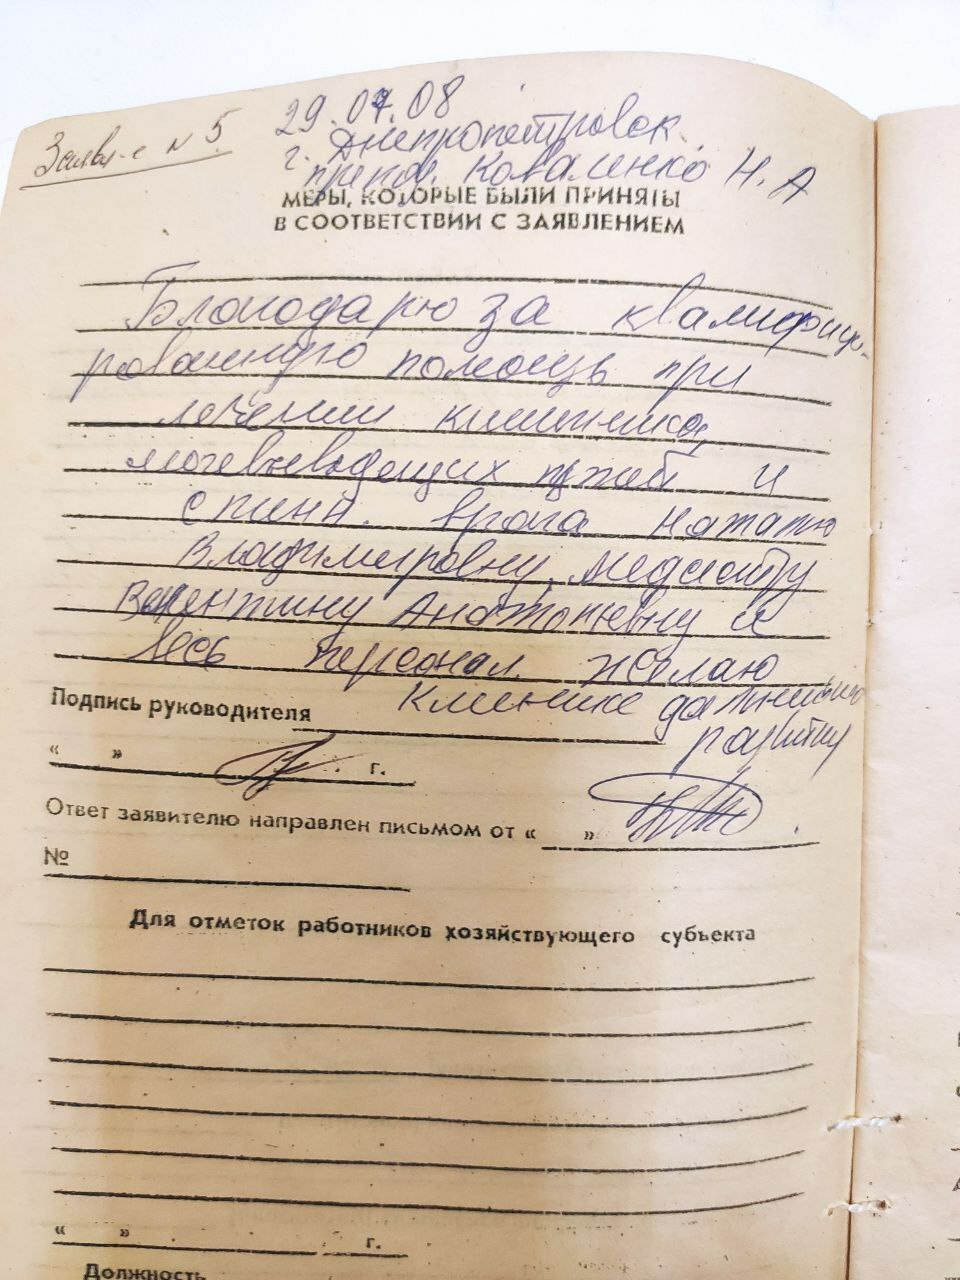 Заявл-е N 5
29.07.08
г. Днепропетровск.
препод. Коваленко Н. А
МЕРЫ, КОТОРЫЕ БЫЛИ ПРИНЯТЫ
В СООТВЕТСТВИИ С ЗАЯВЛЕНИЕМ
Благодарю за квалифици-
рованную помощь при
лечении кишечника,
мочевыводящих путей и
спины. врача Наталию
Владимировну, медсестру
Валентину Анатольевну и
весь персонал. Желаю
Клинике дальнейшего
развития
Подпись руководителя
« » г.
Ответ заявителю направлен письмом от « »
№
Для отметок работников хозяйствующего субъекта
« » г.
Должность